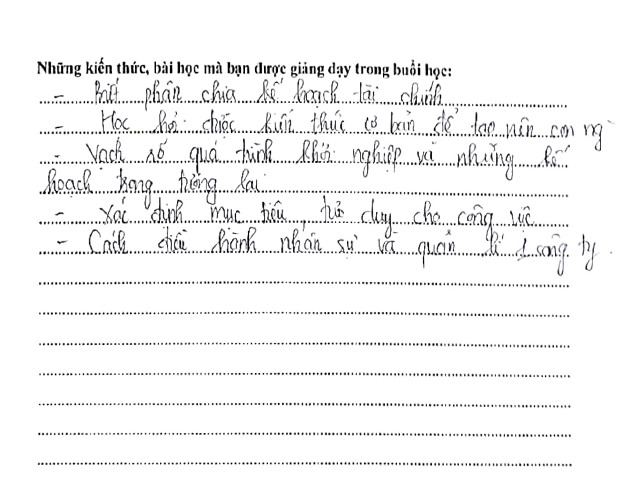 Những kiến thức, bài học mà bạn được giảng dạy trong buổi học:
- Biết phân chia kế hoạch tài chính
- Học hỏi chiộc kiến thức cơ bản để tạo nên con ng
- Vạch số quá trình khởi nghiệp và những kế
hoạch trong tương lai
- Xác định mục tiêu, tư duy cho công việc
- Cách điều hành nhân sự và quản lí 1 công ty.